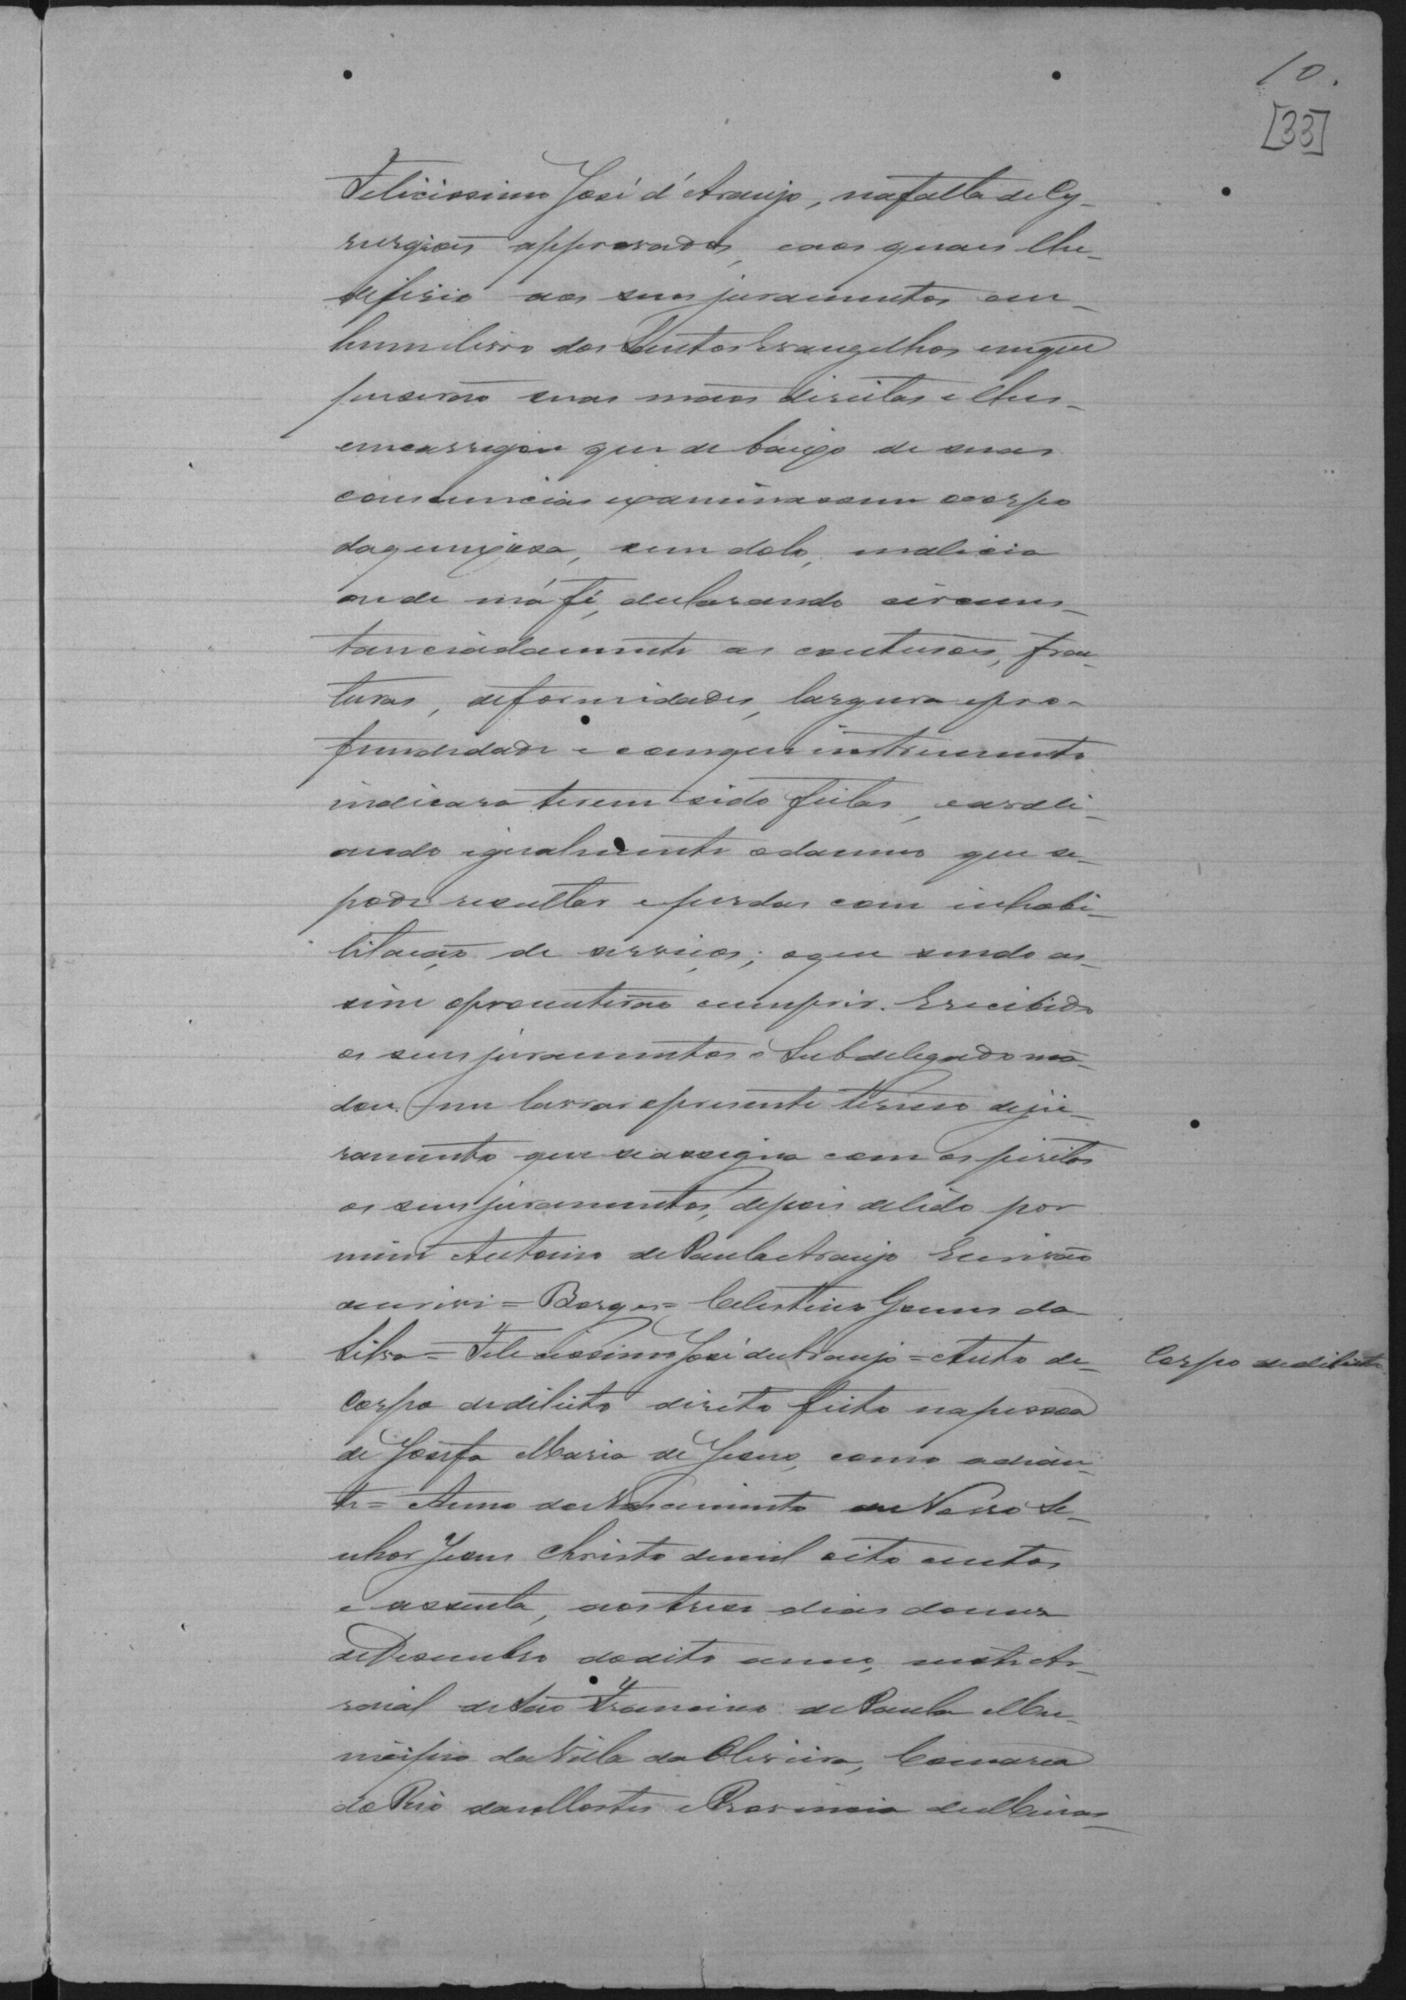 10.
[33]
Felicissimo José d'Araujo, na falta de Cy-
rurgioes approvados, e aos quaes lhe-
deferio aos seus juramentos em-
hum livro dos Santos Evangelhos em que
puserão suas mãos direitas e lhes-
encarregou que de baixo de suas
consciencias examinassem o corpo
daquella, sem dolo, malicia
ou de má fé, declarando circuns-
tanciadamente as contusões, frac-
turas, deformidades, largura e pro-
fundidade e com que instrumento
indicava terem sido feitas, e avali-
ando igualmente o damno que se-
pode resultar e perdas com inhabi-
litação de serviços; o que sendo as-
sim o prometterão cumprir. E recebido
os seus juramentos o Subdelegado mã-
dou-me lavrar o presente termo de ju-
ramento que se assigna com os peritos
os seus juramentos, depois de lido por
mim Antonio de Paula Araujo Escrivão
escrivi = Borges = Celestino Gomes da
Silva = Felicissimo José de Araujo = Auto de-
Corpo de delicto direto feito na pessoa
de Josefa Maria de Jesus, como adian-
te = Anno do Nascimento de Nosso Se-
nhor Jesus Christo de mil oito centos
e sessenta, aos tres dias do mez
de Desembro do dito anno, neste Ar-
raial de São Francisco de Paula Mu-
nicipio da Villa da Oliveira, Comarca
do Rio das Mortes e Provincia de Minas-
Corpo de delicto